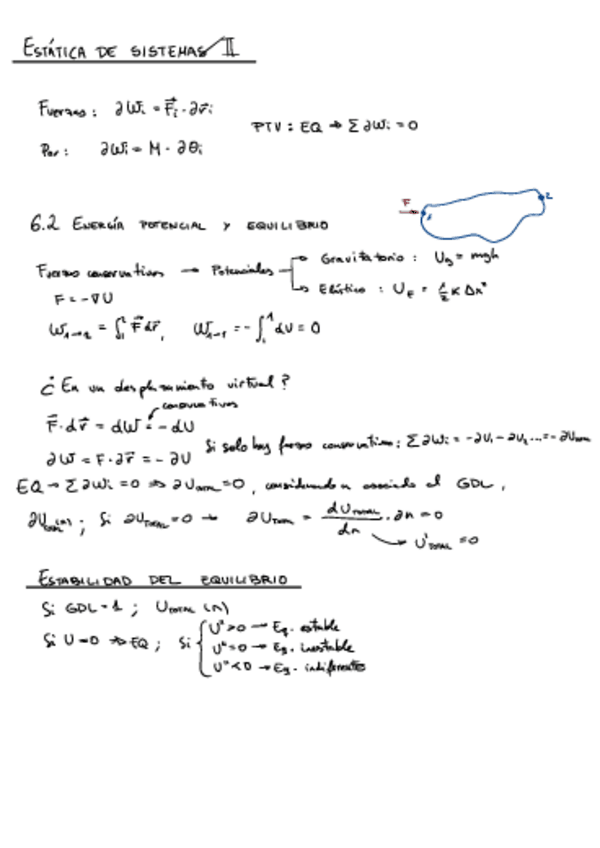 ESTÁTICA DE SISTEMAS II
Fuerzas: ∂Wi = F⃗i · ∂r⃗i
PTV: EQ → Σ ∂Wi = 0
Par: ∂Wi = M · ∂θi
F 1 2
6.2 ENERGÍA POTENCIAL Y EQUILIBRIO
Fuerzas conservativas → Potenciales → Gravitatorio: Ug = mgh
→ Elástico: UE = 1/2 K Δx²
F = -∇U
W1→2 = ∫₁² F⃗ dr⃗, W1→1 = -∫₁¹ dU = 0
¿En un desplazamiento virtual?
conservativas
F⃗ · dr⃗ = dW = -dU
Si solo hay fuerzas conservativas: Σ ∂Wi = -∂U1 - ∂U2 ... = -∂Utotal
∂W = F · ∂r⃗ = -∂U
EQ → Σ ∂Wi = 0 ⇒ ∂Utotal = 0, considerando n asociado al GDL,
; Si ∂UTOTAL = 0 → ∂UTOTAL = dUTOTAL/dn · ∂n = 0
→ U'TOTAL = 0
ESTABILIDAD DEL EQUILIBRIO
Si GDL = 1; UTOTAL (n)
Si U = 0 ⇒ EQ; Si { U" > 0 → Eq. estable
U" = 0 → Eq. inestable
U" < 0 → Eq. indiferente